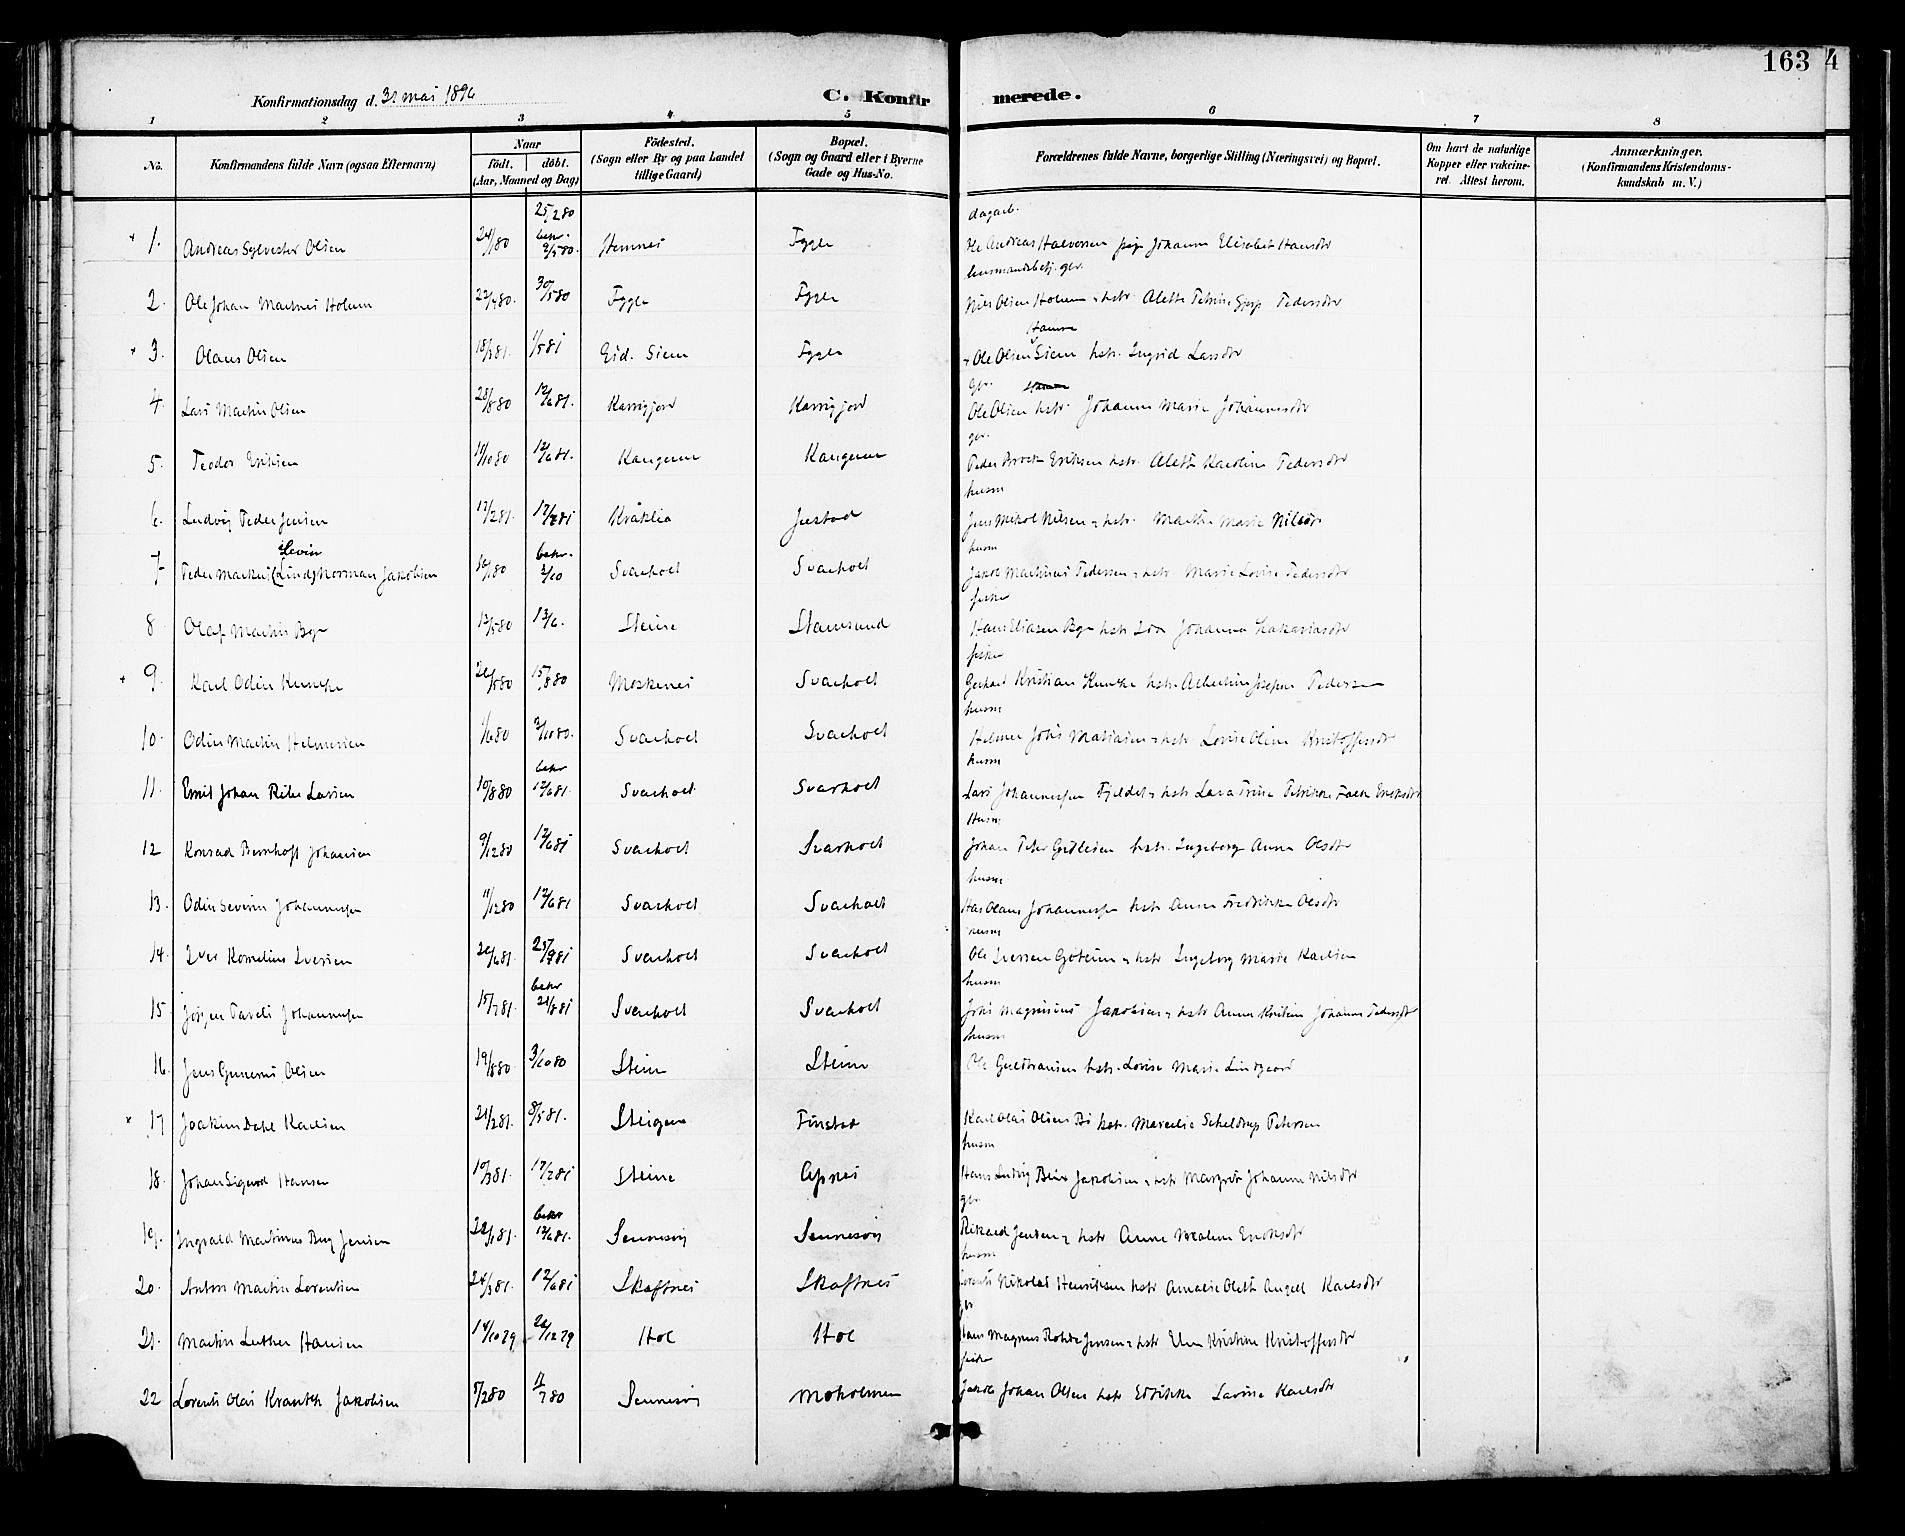 163 4
Konfirmationsdag d. 31 mai 1896
C. Konfirmerede.
1 2 3 4 5 6 7 8
No.
Konfirmandens fulde Navn (ogsaa Efternavn)
Naar
födt. döbt.
(Aar, Maaned og Dag)
Födested.
(Sogn eller By og paa Landet
tillige Gaard)
Bopæl.
(Sogn og Gaard eller i Byerne
Gade og Hus-No.
Forældrenes fulde Navne, borgerlige Stilling (Næringsvei) og Bopæl.
Om havt de naturlige
Kopper eller vakcine-
ret. Attest herom.
Anmærkninger.
(Konfirmandens Kristendoms-
kundskab m. V.)
dagarb.
1. Andreas Sylvester Olsen 24/1 80 25/2 80 bekr. 9/5 80. Hemnes Fygle Ole Andreas Halvorsen pige Johanna Elisabet Hansdtr
husmandsbetj. gbr.
2. Ole Johan Martnes Holum 22/4 80. 30/5 80 Fygle Fygle Nils Olsen Holum hstr. Alette Petrine Pedersdtr
3. Olaus Olsen 18/3 81. 1/5 81 Eid. Siem Fygle Ole Olsen Siem hstr. Ingrid Larsdtr
gbr.
4. Lars Martin Olsen 28/8 80 12/6 81. Kongsjord Kongsjord Ole Olsen hstr. Johanna Marie Johannesdtr
gbr.
5. Teodor Eriksen 11/10 80 12/6 81. Kangerur Kangerur Peder Brock Eriksen hstr. Alette Karoline Pedersdtr
husm
6. Ludvig Peder Jensen 12/2 81. Kråklia Justad Jens Mikal Nilsen hstr. Martha Marie Nilsdtr
husm
7 Peder Martin (Lind) Levin Norman Jakobsen 16/1 80 bekr. 3/10 Svarholt Svarholt Jakob Martinus Pedersen hstr Marie Lovise Pedersdtr
fisker
8 Olaf Martin Bye 13/5 80 13/6. Steine Stamsund Hans Eliasen Bye hstr Ida Johanna Zakariasdtr
fisker
9. Karl Odin Kuncke 15/8 80 Moskenes Svarholt Gerhard Kristian Kuncke hstr. Albertine Josefine Pedersen
husm
10. Odin Martin Helmersen 1/6 80 3/10 80. Svarholt Svarholt Helmer Johs Matiasen hstr Lovise Oline Kristoffersdtr
husm
11. Emil Johan Riber Larsen 10/8 80 bekr 12/6 81. Svarholt Svarholt Lars Johannessen Fjeldet hstr Lava Trine Petrikke Falch Eriksdtr
Husm
12 Konrad Bernhoft Johansen 9/12 80 12/6 81 Svarholt Svarholt Johan Peter Gotleisen hstr. Ingeborg Anna Olsdtr
husm
13. Odin Severin Johannessen 11/12 80 12/6 81 Svarholt Svarholt Hans Olaus Johannessen hstr Anna Fredrikke Olsdtr
husm
14. Iver Kornelius Iversen Svarholt Svarholt Ole Iversen hstr Ingeborg Marie Karlsen
husm
15. Jørgen Pareli Johannessen 15/7 81. bekr 21/8 81 Svarholt Svarholt Johs Magnusius Jakobsen hstr Anna Kristine Johanna Pedersdtr
husm
16. Jens Gunerius Olsen 19/8 80. 3/10 80 Steine Steine Ole Guldbransen hstr. Lovise Marie Lindgaard
17 Joakim Dahl Karlsen 21/2 81. 8/5 81. Steigen Finstad Karl Olai Olsen Bö hstr. Marcelie Scheldrup Petersen
husm
18. Johan Sigurd Hansen 10/3 81. 17/2 81 Steine Apnes Hans Ludvig Beix Jakobsen hstr Margret Johanna Nilsdtr
gbr
19. Ingvald Martinus Berg Jensen 22/1 81. bekr 12/6 81. Sennesvig Sennesvig Rikard Jensen hstr Anna Eriksdtr
husm
20. Anton Martin Lorentsen 24/3 81. 12/6 81 Skaftnes Skaftnes Lorents Nikolai Henriksen hstr Amalie Olette Angell Karlsdtr
gbr
21. Martin Luther Hansen 14/10 79 26/12 79 Hol Hol Hans Magnus Rohde Jensen hstr Elen Kristine Kristoffersdtr
fisker
22 Lorents Olai Kranth Jakobsen 5/2 80 11/7 80 Sennesvig Moholmen Jakob Johan Olsen hstr Edrikke Lovise Karlsdtr